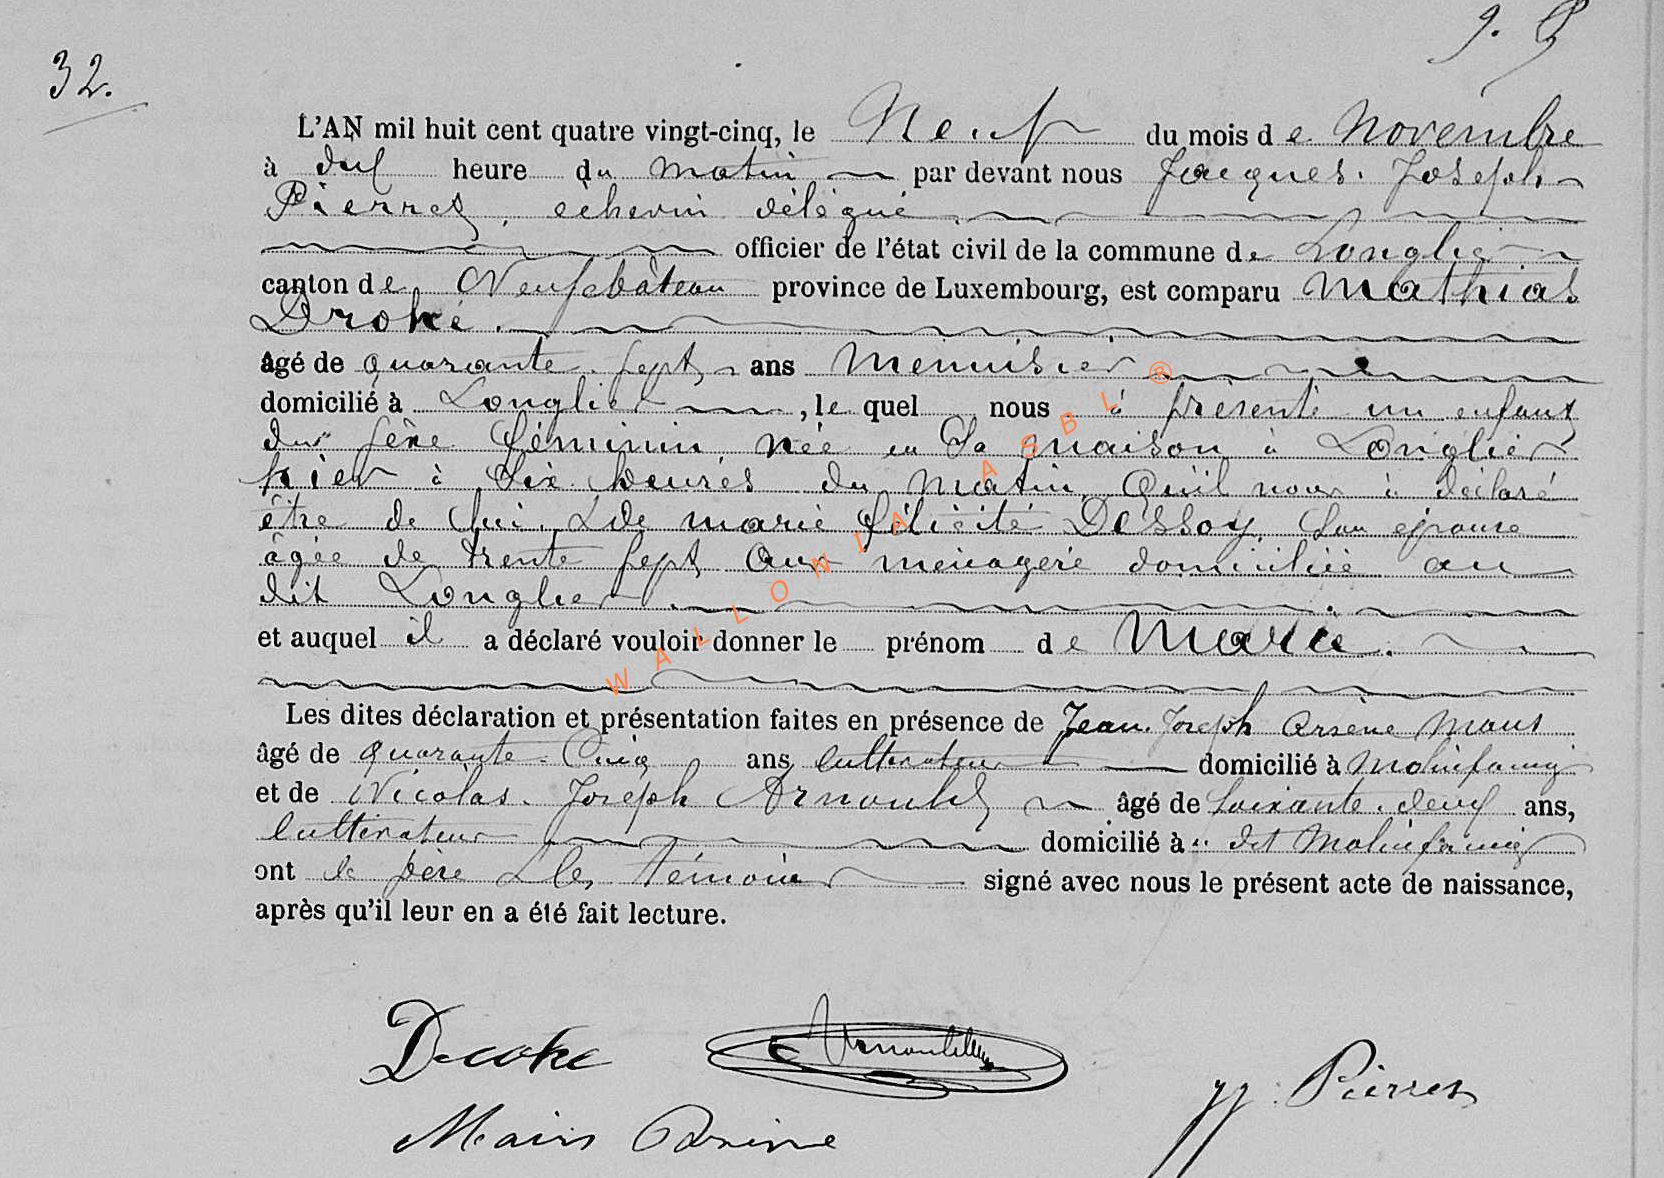 32.
L'AN mil huit cent quatre vingt-cinq, le Neuf du mois de Novembre
à dix heure du matin par devant nous Jacques Joseph
Pierret, échevin délégué
officier de l'état civil de la commune de Longlier
canton de Neufchâteau province de Luxembourg, est comparu Mathias
Droké.
âgé de quarante sept ans menuisier
domicilié à Longlier, lequel nous à présenté un enfant
du sexe féminin, née en sa maison à Longlier
hier à dix heures du matin, qu'il nous à déclaré
être de lui, & de marie félicité Dessoy, son épouse
âgée de trente sept ans ménagère domiciliée au
dit Longlier
et auquel il a déclaré vouloir donner le prénom de Marie.
Les dites déclaration et présentation faites en présence de Jean Joseph Arsène Maus
âgé de quarante-Cinq ans, cultivateur domicilié à Molinfaing
et de Nicolas Joseph Arnould âgé de soixante-deux ans,
cultivateur domicilié à dit Molinfaing
ont le père & les témoins signé avec nous le présent acte de naissance,
après qu'il leur en a été fait lecture.
WALLONIA ASBL ®
JJ. Pierret